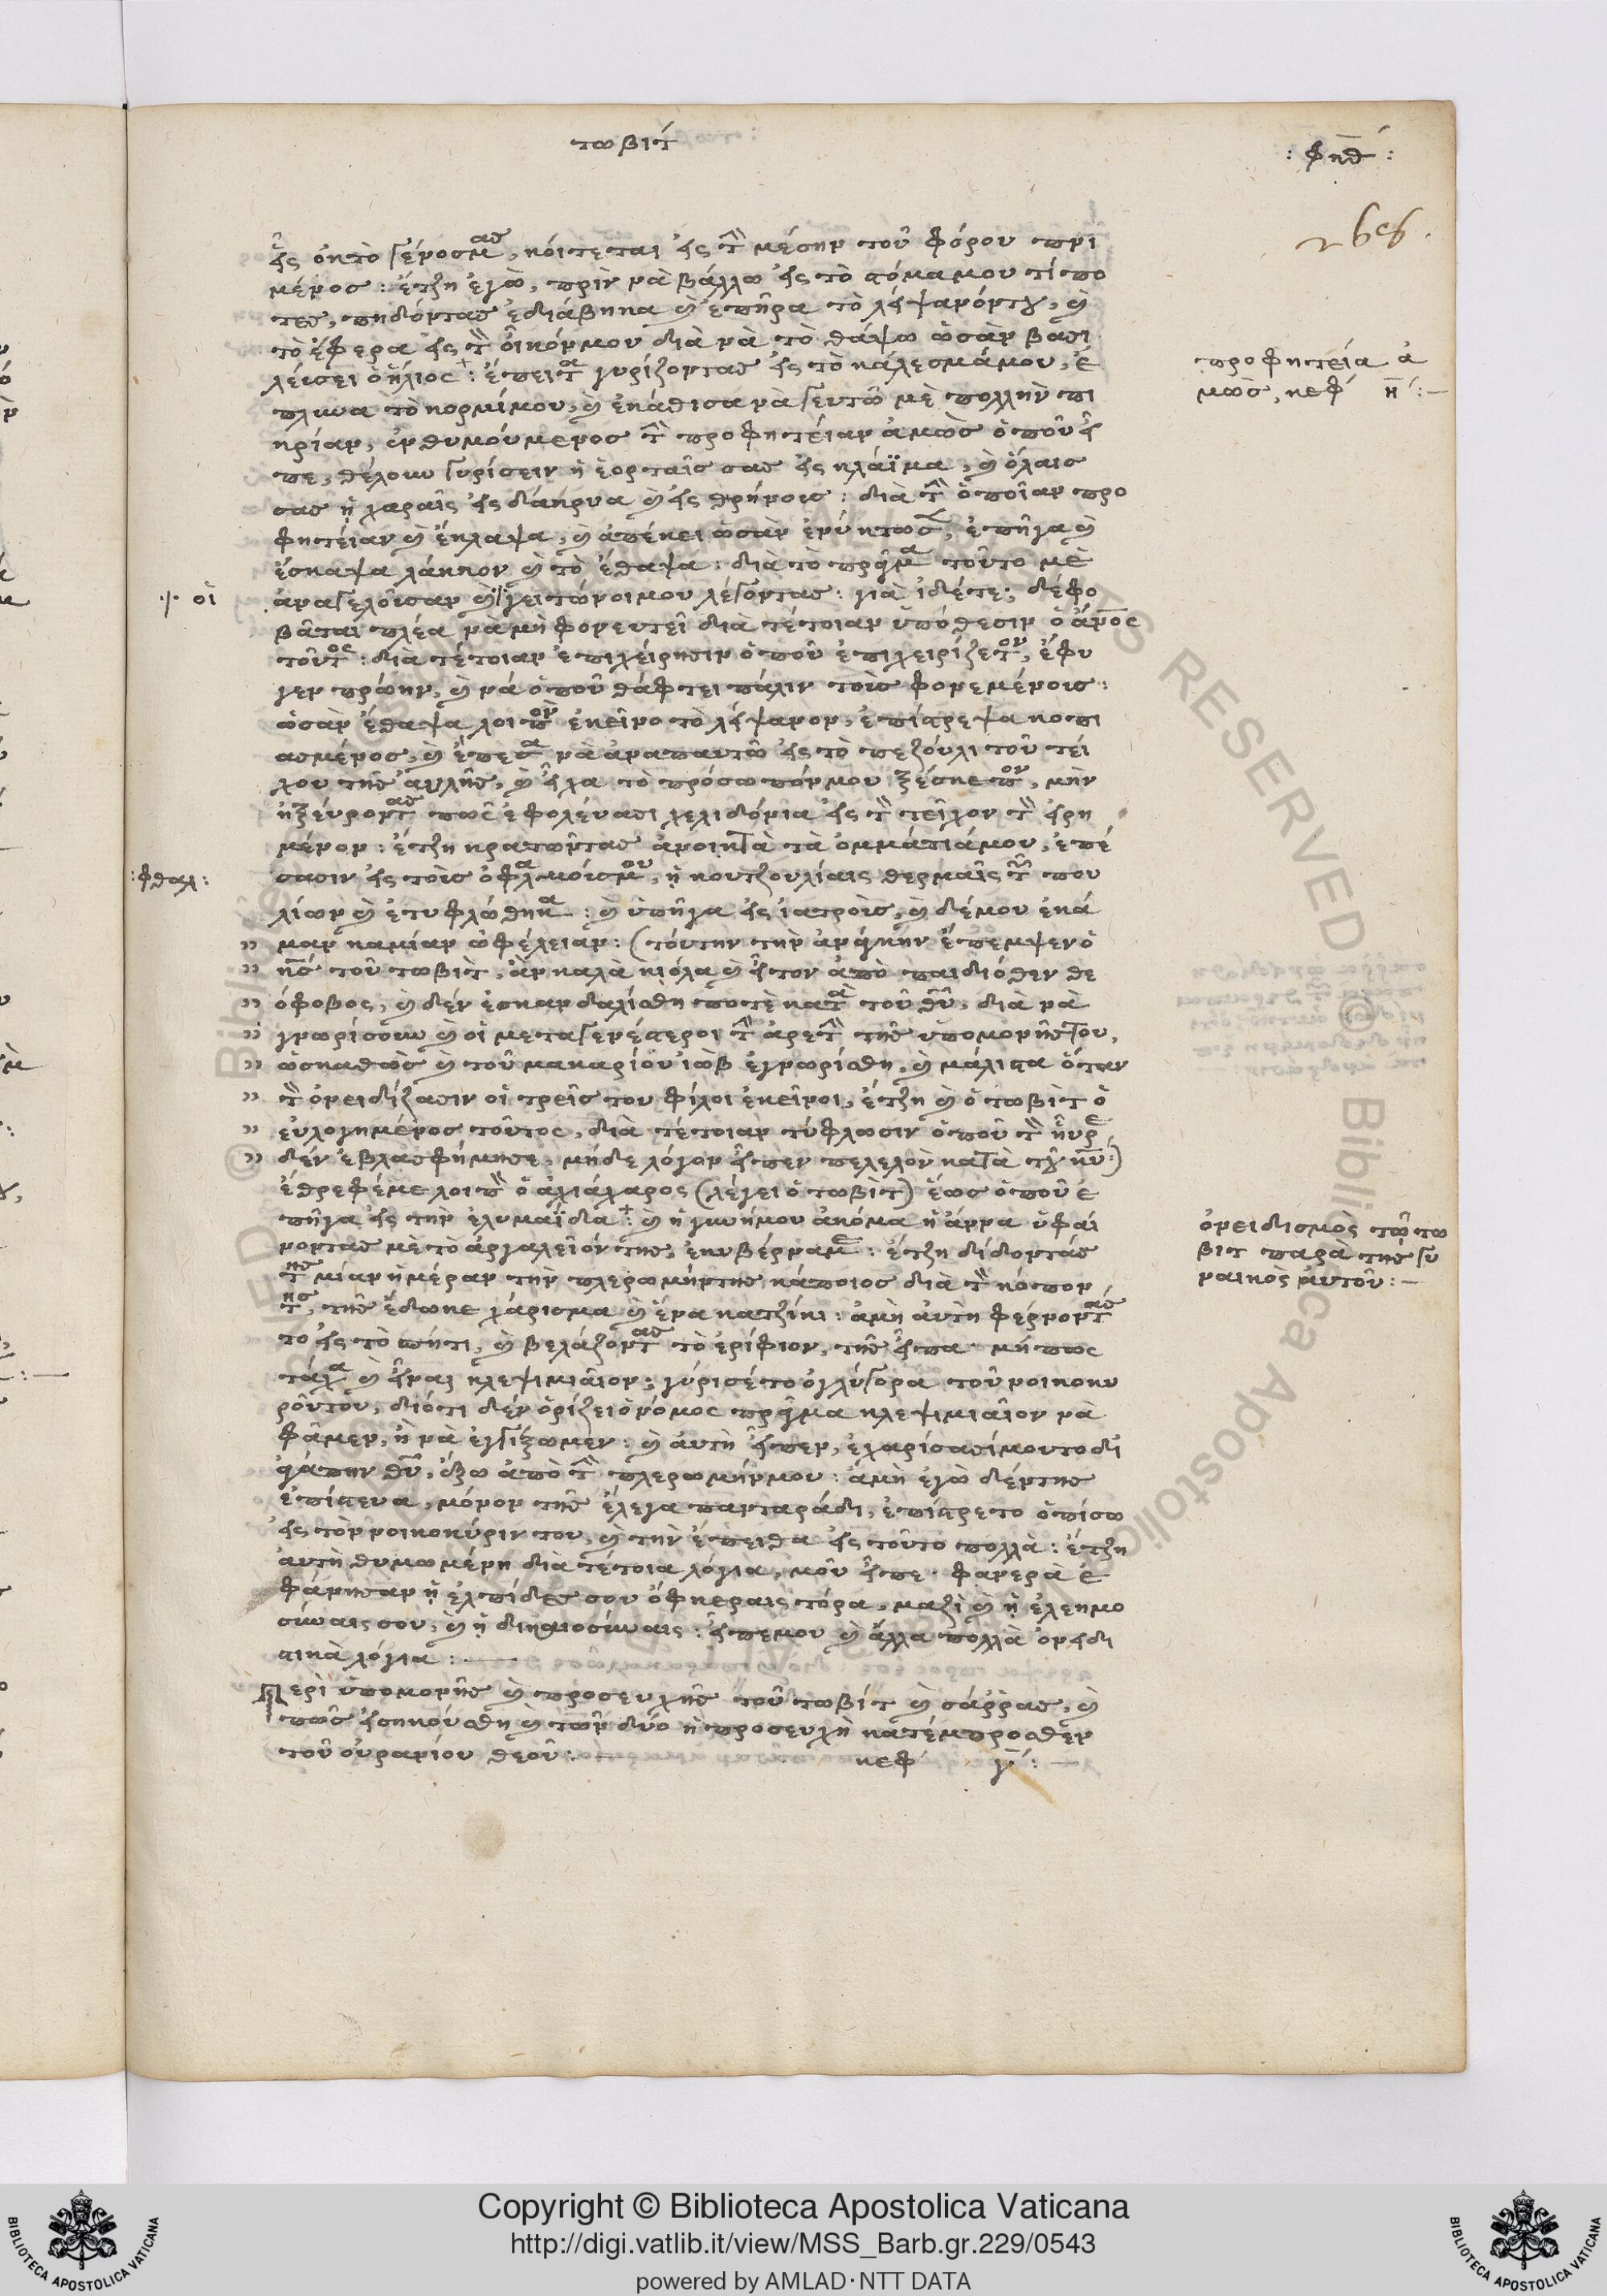 τωβίτ
: φηθ́ :
εἷς ἐκ τὸ γένοσμας, κοίτεται εἰς τὴ μέσην τοῦ φόρου πνι
μένος : ἔτζη ἐγὼ, πρὶν νὰ βάλλω εἰς τὸ στόμαμου τίπο
τες, πηδόντας ἐδιάβηκα καὶ ἐπῆρα τὸ λείψανόντου, καὶ
τὸ ἔφερα εἰς τὸ οἰκόνμου διὰ νὰ τὸ θάψω ὡσὰν βασι
λεύσει ὁ ἥλιος : ἔπειτα γυρίζοντας εἰς τὸ κάλεσμάμου, ἔ
πλυνα τὸ κορμίμου, καὶ ἐκάθισα νὰ γευτῶ μὲ πολλὴν πι
κρίαν, ἐνθυμούμενος τὴ προφητείαν ἀμὼς ὁποῦ εἶ
πε, θέλουν γυρίσειν ἡ ἑορταῖς σας εἰς κλάϊμα, καὶ ὅλαις
σας ἡ χαραῖς εἰς δάκρυα καὶ εἰς θρήνοις : διὰ τὴ ὁποῖαν προ
φητείαν καὶ ἔκλαψα, καὶ ἀπέκει ὡσὰν ἐνύκτωσε, ἐπῆγα καὶ
ἔσκαψα λάκκον καὶ τὸ ἔθαψα : διὰ τὸ πρᾶγμα τοῦτο μὲ
·/· οἱ
ἀναγελοῦσαν καὶ ·/· γειτώνοιμου λέγοντας : γιὰ ἰδέτε ; δέφο
βᾶται πλέα νὰ μὴ φονευτεῖ διὰ τέτοιαν ὑπόθεσιν ὁ ἄνος
τοῦτος : διὰ τέτοιαν ἐπιχείρησιν ὁποῦ ἐπιχειρίζετον, ἔφυ
γεν πρώην, καὶ νά ὁποῦ θάφτει πάλιν τοὶς φονεμένοις :
ὡσὰν ἔθαψα λοιπὸν ἐκεῖνο τὸ λείψανον, ἐπίστρεψα κοπι
ασμένος, καὶ ἔπεσα νὰ ἀναπαυτῶ εἰς τὸ πεζούλι τοῦ τεί
χου τῆς αὐλῆς, καὶ εἶχα τὸ πρόσωπόνμου ξέσκεπον, μὴν
ἠξεύροντας πῶς ἐφολεύασι χελιδόνια εἰς τὸ τεῖχον τὸ εἰρη
μένον : ἔτζη κρατῶντας ἀνοικτὰ τὰ ὀμμάτιάμου, ἐπέ
:φθαλ:
σασιν εἰς τοὶς ὀφλαμοίσμου, ἡ κουτζουλίαις θερμαῖς τῶν που
λίων καὶ ἐτυφλώθηκα : καὶ ὑπῆγα εἰς ἰατροὶς, καὶ δέμου ἐκά
" μαν καμίαν ὠφέλειαν : (τούτην τὴν ἀνάγκην ἔπεμψεν ὁ
" κς τοῦ τωβὶτ, ἂν καλὰ κιόλα καὶ εἶτον ἀπὸ παιδιόθεν θε
" όφοβος, καὶ δὲν ἐσκανδαλίσθη ποτὲ κατὰ τοῦ θῦ, διὰ νὰ
" γνωρίσουν καὶ οἱ μεταγενέστεροι τὴ ἀρετὴ τῆς ὑπομονῆστου,
" ὡσκαθὼς καὶ τοῦ μακαρίου ἰὼβ ἐγνωρίσθη, καὶ μάλιστα ὅταν
" τὸ ὀνειδίζασιν οἱ τρεῖς του φίλοι ἐκεῖνοι, ἔτζη καὶ ὁ τωβὶτ ὁ
" εὐλογημένος τοῦτος, διὰ τέτοιαν τύφλωσιν ὁποῦ τὸ ηὗρε
" δὲν ἐβλασφήμησε, μήδε λόγον εἶπεν πελελὸν κατὰ τοῦ κυ :)
ἐθρεφέμε λοιπὸ ὁ ἀχιάχαρος (λέγει ὁ τωβὶτ) ἕως ὁποῦ ἐ
πῆγα εἰς τὴν ἐλυμαΐδα : καὶ ἡ γυνήμου ἀκόμα ἡ ἄννα ὑφαί
νοντας μὲ τὸ ἀργαλεῖόν της, ἐκυβέρναμε : ἔτζη δίδοντάς
της μίαν ἡμέραν τὴν πλερωμήντης κάποιος διὰ τὸ κόπον
της, τῆς ἔδωκε χάρισμα καὶ ἕνα κατζίκι : ἀμὴ αὐτὴ φέρνοντάς
το εἰς τὸ σπήτι, καὶ βελάζοντας τὸ ἐρίφιον, τῆς εἶπα μήπως
τάχα καὶ εἶναι κλεψιμιαῖον ; γύρισέτο ὀγλύγορα τοῦ νοικοκυ
ροῦντου, διότι δὲν ὁρίζει ὁ νόμος πρᾶγμα κλεψιμιαῖον νὰ
φᾶμεν, ἢ νὰ ἐγγίξωμεν : καὶ αὐτὴ εἶπεν, ἐχαρίσασίμουτο δι᾿
ἀγάπην θῦ, ἔξω ἀπὸ τὴ πλερωμήνμου : ἀμὴ ἐγὼ δέντης
ἐπίστευα, μόνον τῆς ἔλεγα πανταράδι, ἐπίστρετο ὀπίσω
εἰς τὸν νοικοκύριν του, καὶ τὴν ἔπειθα εἰς τοῦτο πολλὰ : ἔτζη
αὐτὴ θυμωμένη διὰ τέτοια λόγια, μοῦ εἶπε · φανερὰ ἐ
φάνησαν ἡ ἐλπίδες σου ὀφκεραῖς τόρα, μαζὶ καὶ ἡ ἐλεημο
σύναις σου, καὶ ἡ δικαιοσύναις : εἶπεμου καὶ ἄλλα πολλὰ ὀνειδι
στικὰ λόγια : —
Περὶ ὑπομονῆς καὶ προσευχῆς τοῦ τωβὶτ καὶ σάρρας, καὶ
πῶς εἰσηκούσθη καὶ τῶν δύο ἡ προσευχὴ κατέμπροσθεν
τοῦ οὐρανίου θεοῦ : κεφ γ : —
προφητεία ἀ
μὼς, κεφ η : —
ὀνειδισμὸς τῶ τω
βιτ παρὰ τῆς γυ
ναικὸς αὐτοῦ : —
Copyright © Biblioteca Apostolica Vaticana
http://digi.vatlib.it/view/MSS_Barb.gr.229/0543
powered by AMLAD·NTT DATA
BIBLIOTECA APOSTOLICA VATICANA
BIBLIOTECA APOSTOLICA VATICANA